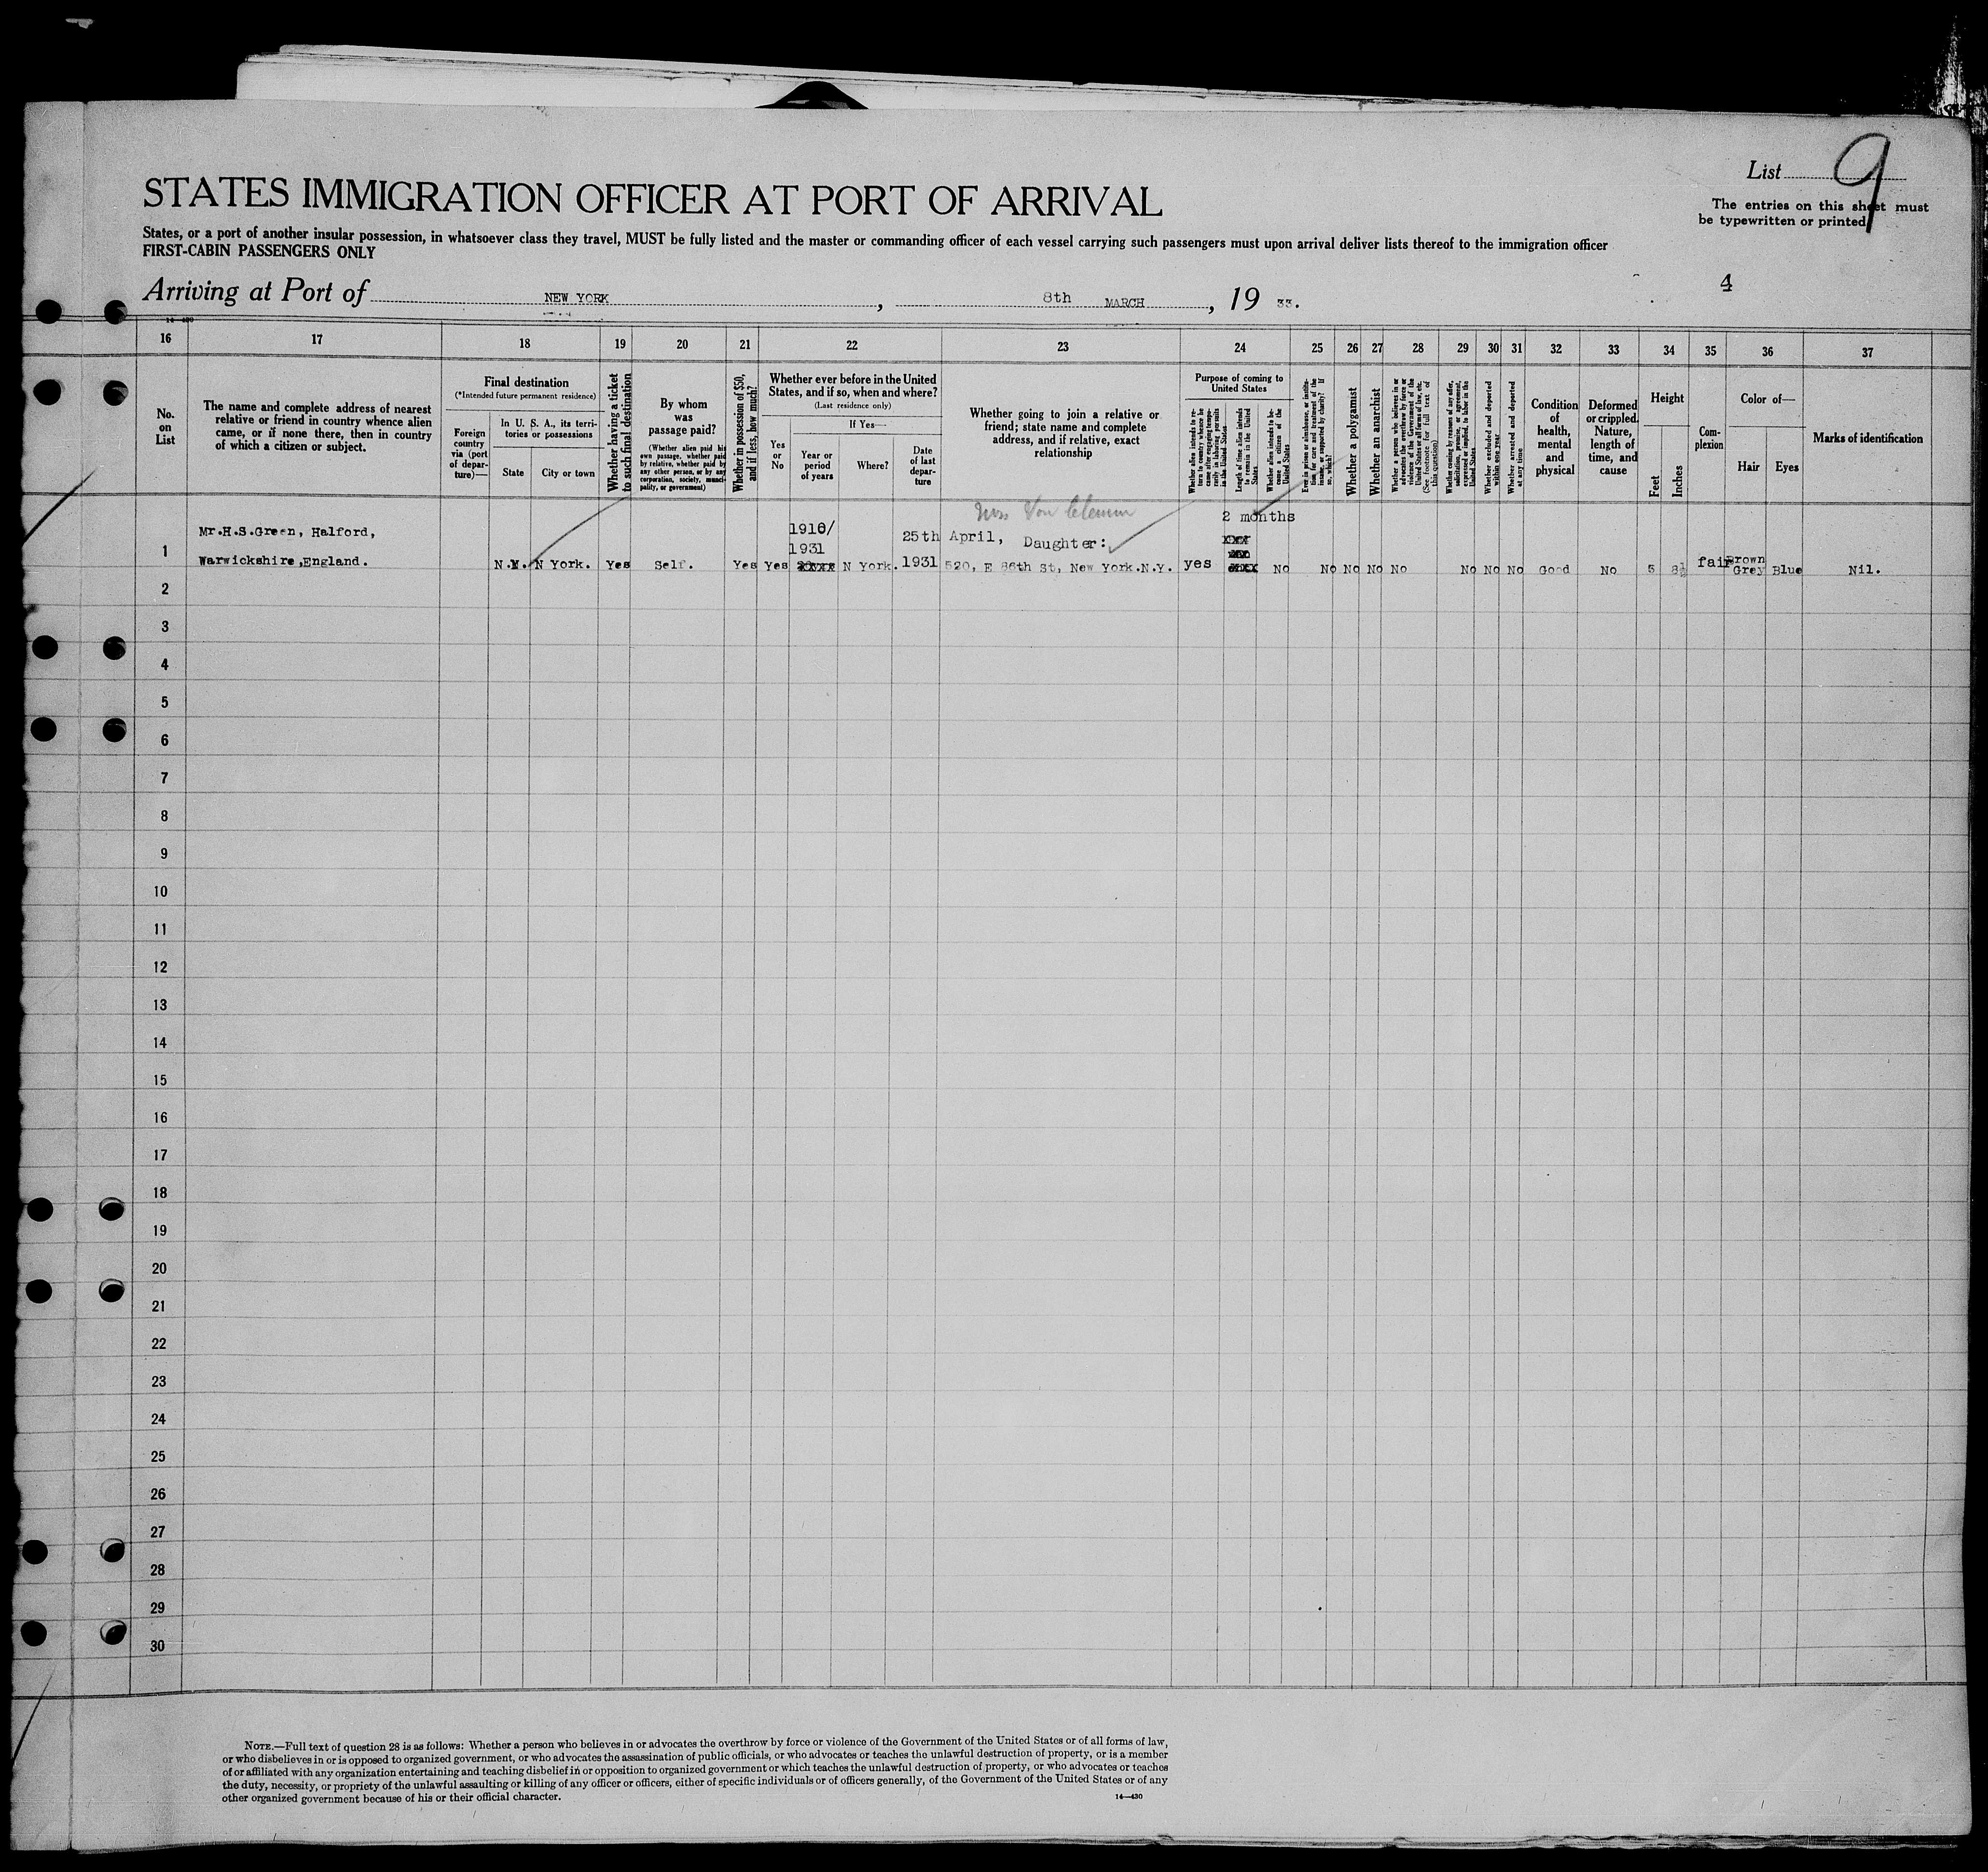 List 9
The entries on this sheet must
be typewritten or printed
STATES IMMIGRATION OFFICER AT PORT OF ARRIVAL
States, or a port of another insular possession, in whatsoever class they travel, MUST be fully listed and the master or commanding officer of each vessel carrying such passengers must upon arrival deliver lists thereof to the immigration officer
FIRST-CABIN PASSENGERS ONLY
4
Arriving at Port of NEW YORK, 8th MARCH, 19 33.
14—430
16 17 18 19 20 21 22 23 24 25 26 27 28 29 30 31 32 33 34 35 36 37
No.
on
List
The name and complete address of nearest
relative or friend in country whence alien
came, or if none there, then in country
of which a citizen or subject.
Final destination
(*Intended future permanent residence)
Foreign
country
via (port
of depar-
ture)—
In U. S. A., its terri-
tories or possessions
State
City or town
Whether having a ticket
to such final destination
By whom
was
passage paid?
(Whether alien paid his
own passage, whether paid
by relative, whether paid by
any other person, or by any
corporation, society, munici-
pality, or government)
Whether in possession of $50,
and if less, how much?
Whether ever before in the United
States, and if so, when and where?
(Last residence only)
Yes
or
No
If Yes—
Year or
period
of years
Where?
Date
of last
depar-
ture
Whether going to join a relative or
friend; state name and complete
address, and if relative, exact
relationship
Purpose of coming to
United States
Whether alien intends to re-
turn to country whence he
came after engaging tempo-
rarily in laboring pursuits
in the United States
Length of time alien intends
to remain in the United
States
Whether alien intends to be-
come a citizen of the
United States
Ever in prison or almshouse, or institu-
tion for care and treatment of the
insane, or supported by charity? If
so, which?
Whether a polygamist
Whether an anarchist
Whether a person who believes in or
advocates the overthrow by force or
violence of the Government of the
United States or all forms of law, etc.
(See footnote for full text of
this question)
Whether coming by reasons of any offer,
solicitation, promise, or agreement,
expressed or implied, to labor in the
United States
Whether excluded and deported
within one year
Whether arrested and deported
at any time
Condition
of
health,
mental
and
physical
Deformed
or crippled.
Nature,
length of
time, and
cause
Height
Feet
Inches
Com-
plexion
Color of—
Hair
Eyes
Marks of identification
Mrs Von Clemm
2 months
Mr.H.S.Green, Halford,
1910/
1931
25th April, Daughter:
1 Warwickshire,England. N.Y. N York. Yes Self. Yes Yes N York. 1931 520, E 86th St, New York.N.Y. yes No No No No No No No No Good No 5 8½ fair Brown
Grey Blue Nil.
2
3
4
5
6
7
8
9
10
11
12
13
14
15
16
17
18
19
20
21
22
23
24
25
26
27
28
29
30
NOTE.—Full text of question 28 is as follows: Whether a person who believes in or advocates the overthrow by force or violence of the Government of the United States or of all forms of law,
or who disbelieves in or is opposed to organized government, or who advocates the assassination of public officials, or who advocates or teaches the unlawful destruction of property, or is a member
of or affiliated with any organization entertaining and teaching disbelief in or opposition to organized government or which teaches the unlawful destruction of property, or who advocates or teaches
the duty, necessity, or propriety of the unlawful assaulting or killing of any officer or officers, either of specific individuals or of officers generally, of the Government of the United States or of any
other organized government because of his or their official character.
14—430